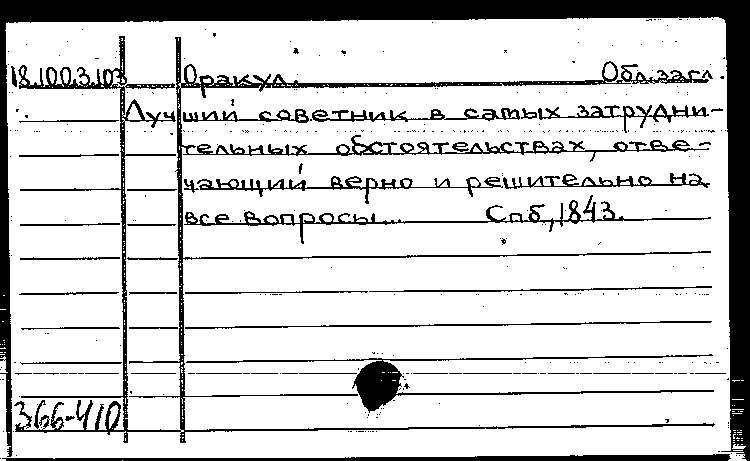 18.100.3.103 Оракул. Обл.загл.
Лучший советник в самых затрудни-
тельных обстоятельствах, отве-
чающий верно и решительно на
все вопросы... Спб, 1843.
366-410